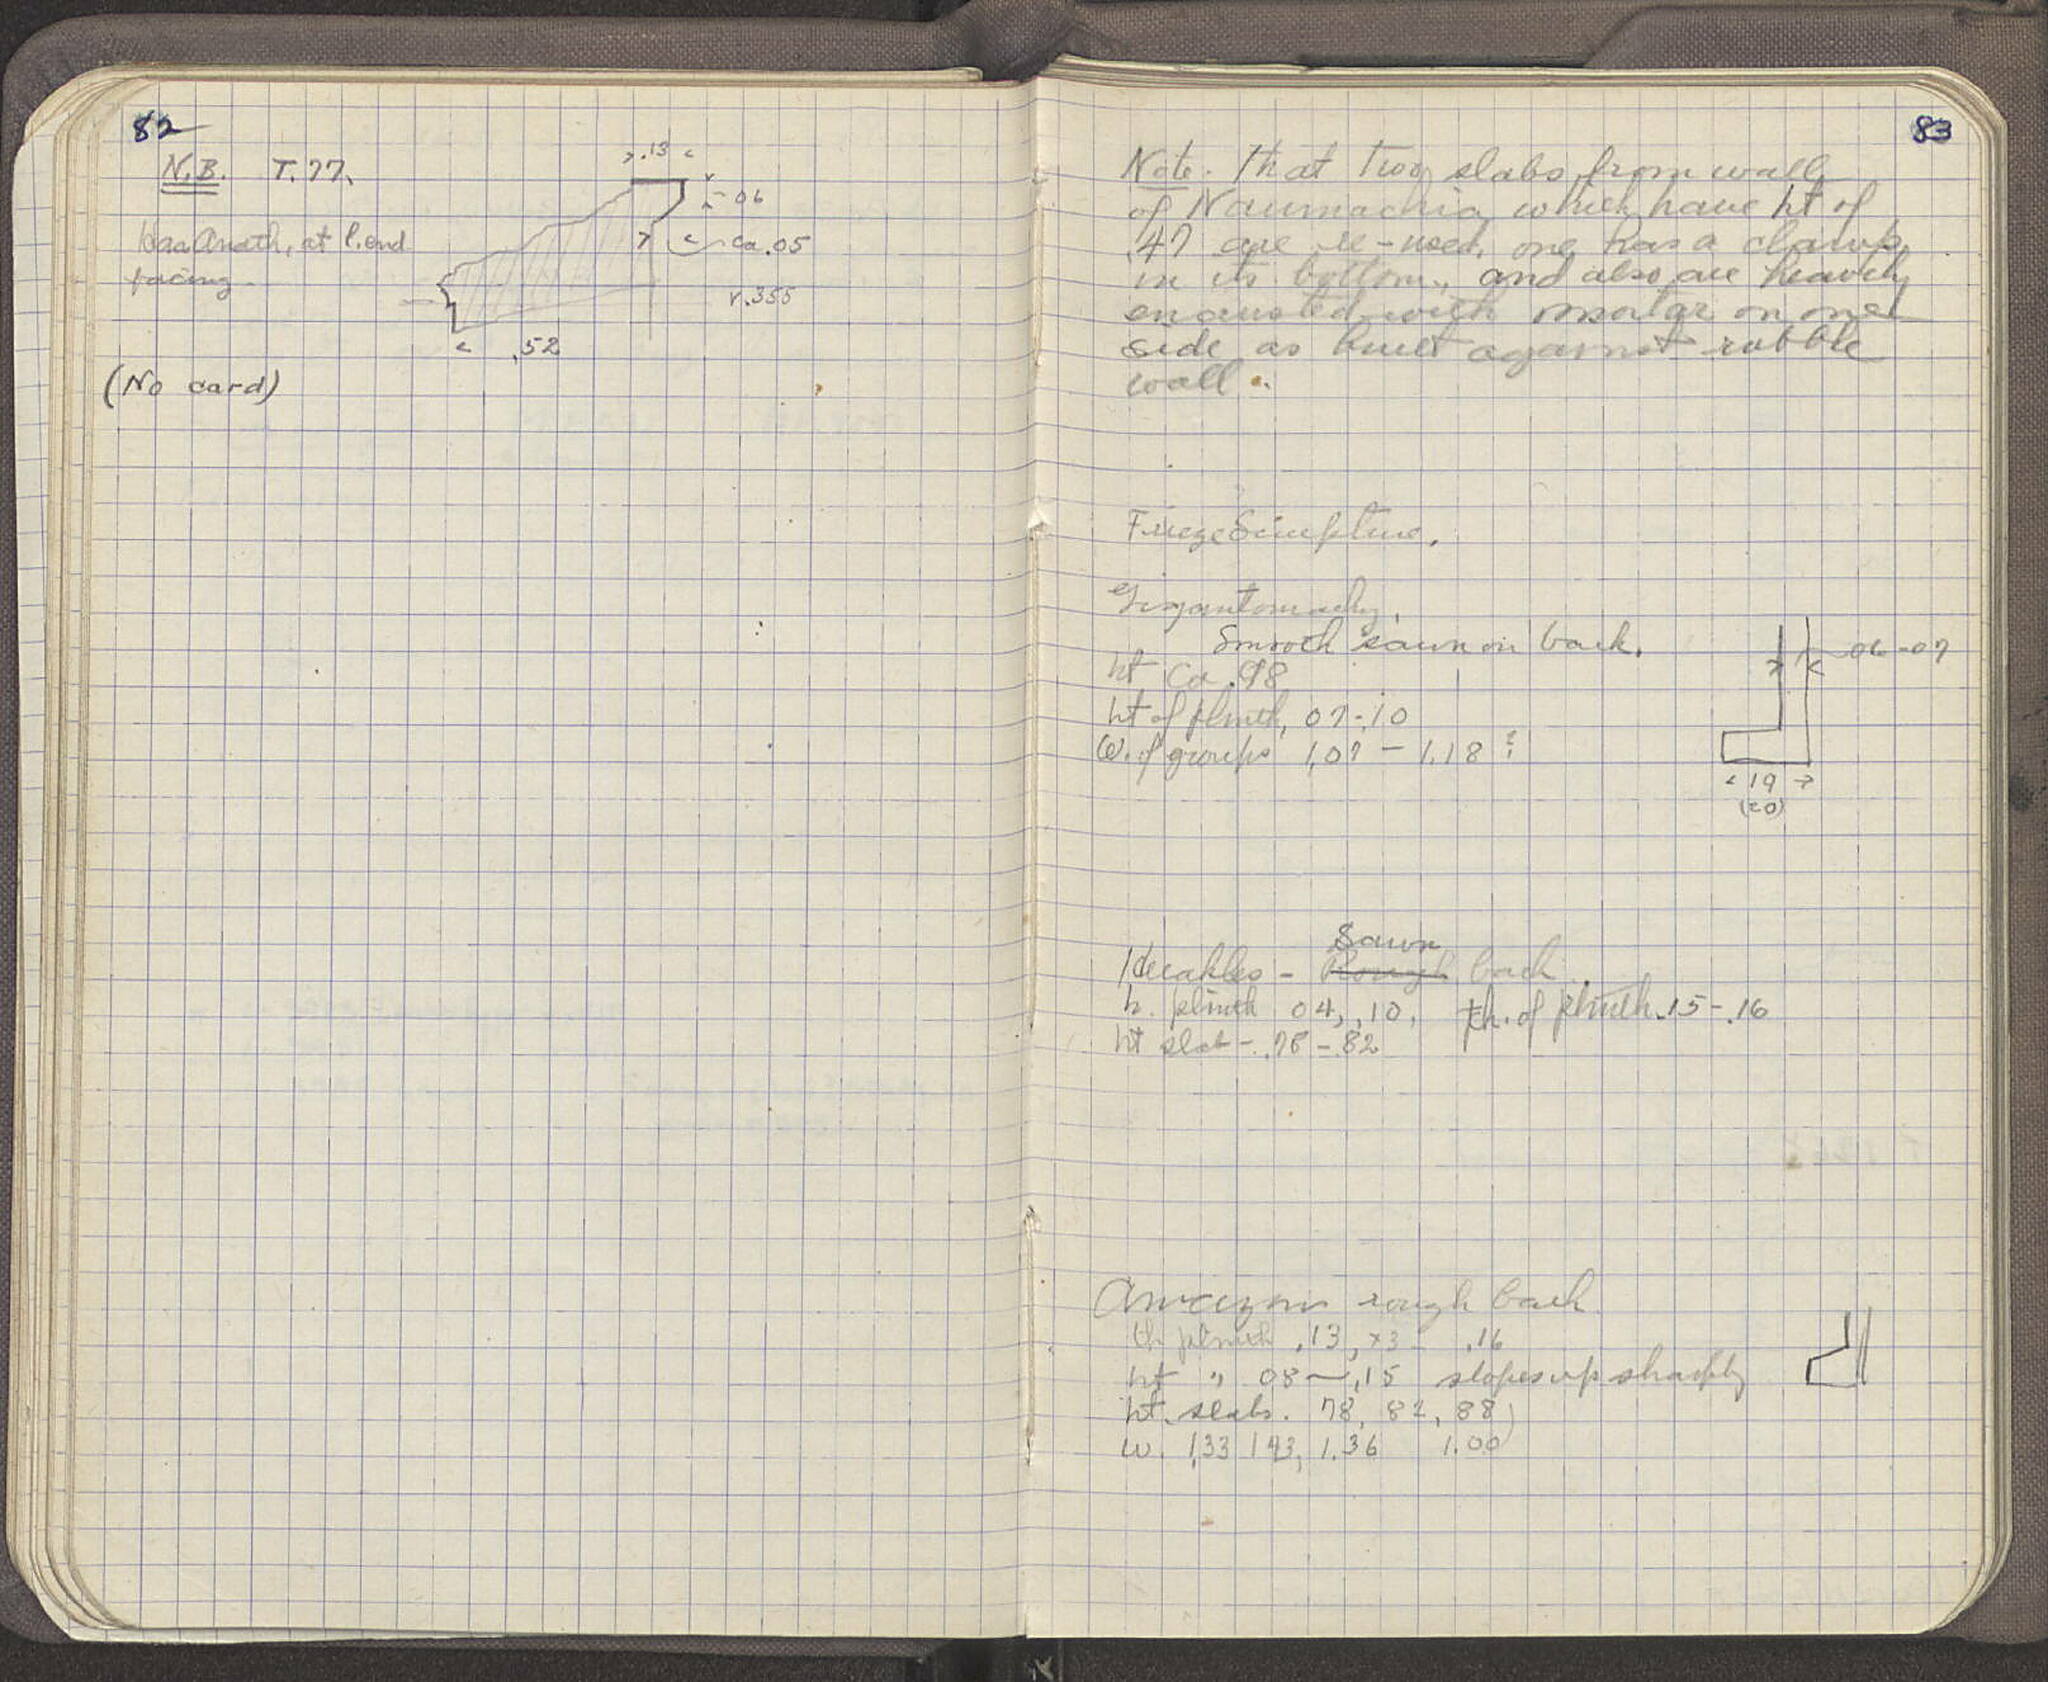 82
N.B. T.77.
>.13<
.06
ca.05
at l. end
facing
r.355
.52
(No card)
83
Note. That two slabs from wall
of Naumachia which have ht of
.47 are re-used. one has a clamp
in its bottom, and also are heavily
encrusted with mortar on one
side as built against rubble
wall.
Frieze Sculpture.
Gigantomachy.
Smooth sawn on back.
ht ca .98
ht of plinth, 07-.10
W. of groups 1,07 - 1.18 ?
06-07
< 19 >
(20)
Sawn
Herakles - Rough back
h. plinth 04, .10, th. of plinth .15-.16
ht slab - .78 - .82
Amazons rough back
th plinth .13, x3 - .16
ht " 08 — .15 slopes up sharply
ht. slabs. 78, 82, 88)
w. 1,33 143, 1.36 1.00